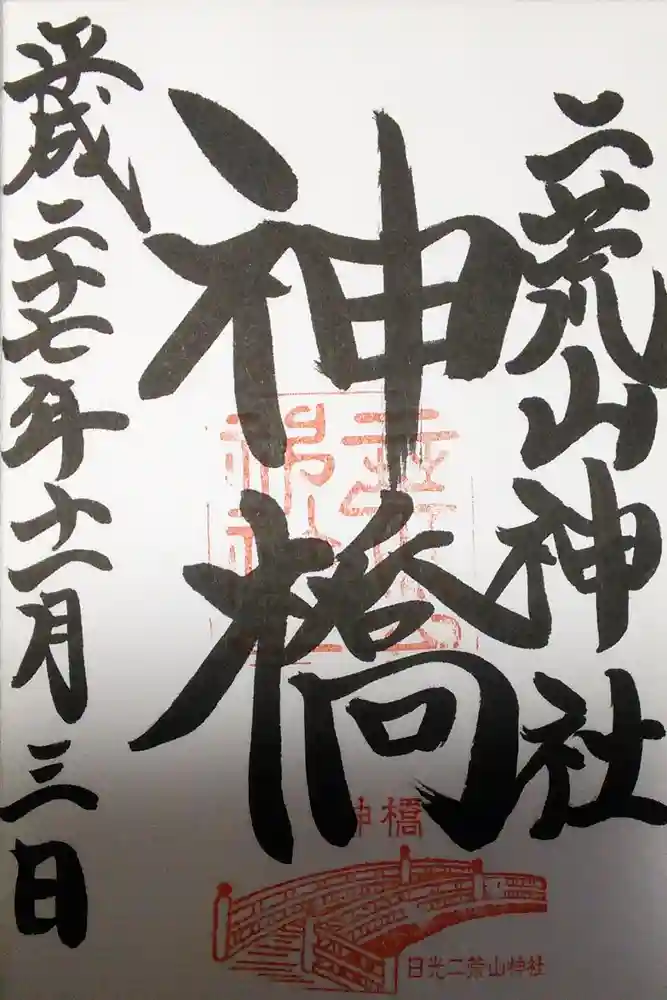 二荒山神社
神橋
平成二十七年十一月三日
神橋
日光二荒山神社